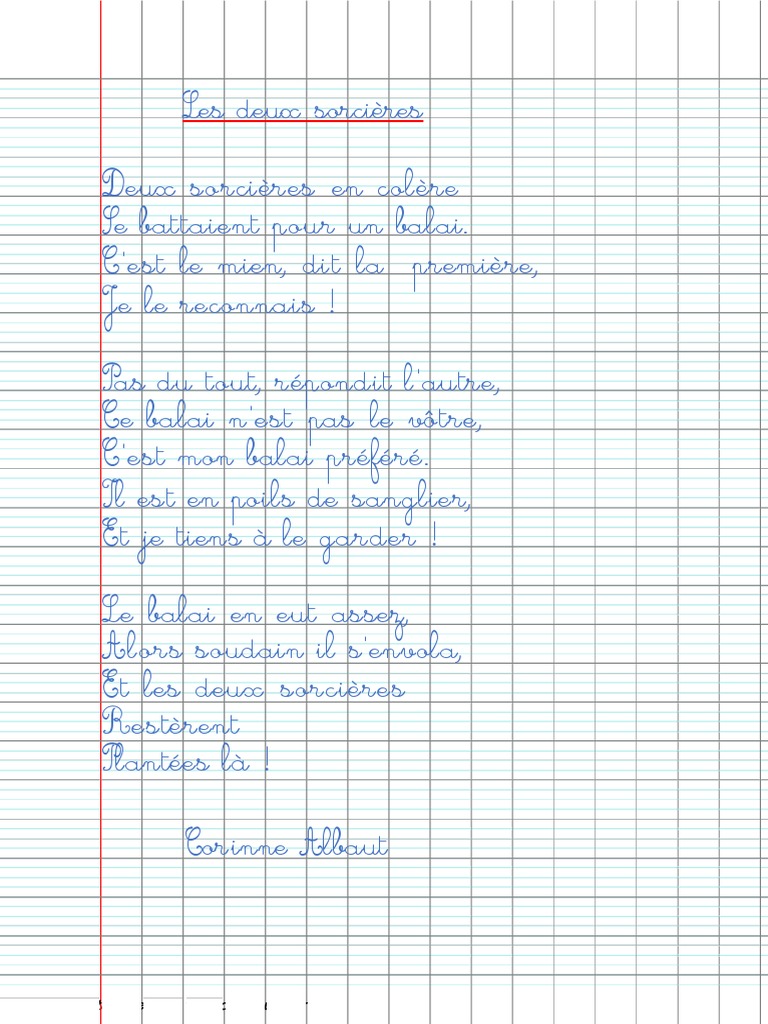 Les deux sorcières
Deux sorcières en colère
Se battaient pour un balai.
C'est le mien, dit la première,
Je le reconnais !
Pas du tout, répondit l'autre,
Ce balai n'est pas le vôtre,
C'est mon balai préféré.
Il est en poils de sanglier,
Et je tiens à le garder !
Le balai en eut assez,
Alors soudain il s'envola,
Et les deux sorcières
Restèrent
Plantées là !
Corinne Albaut